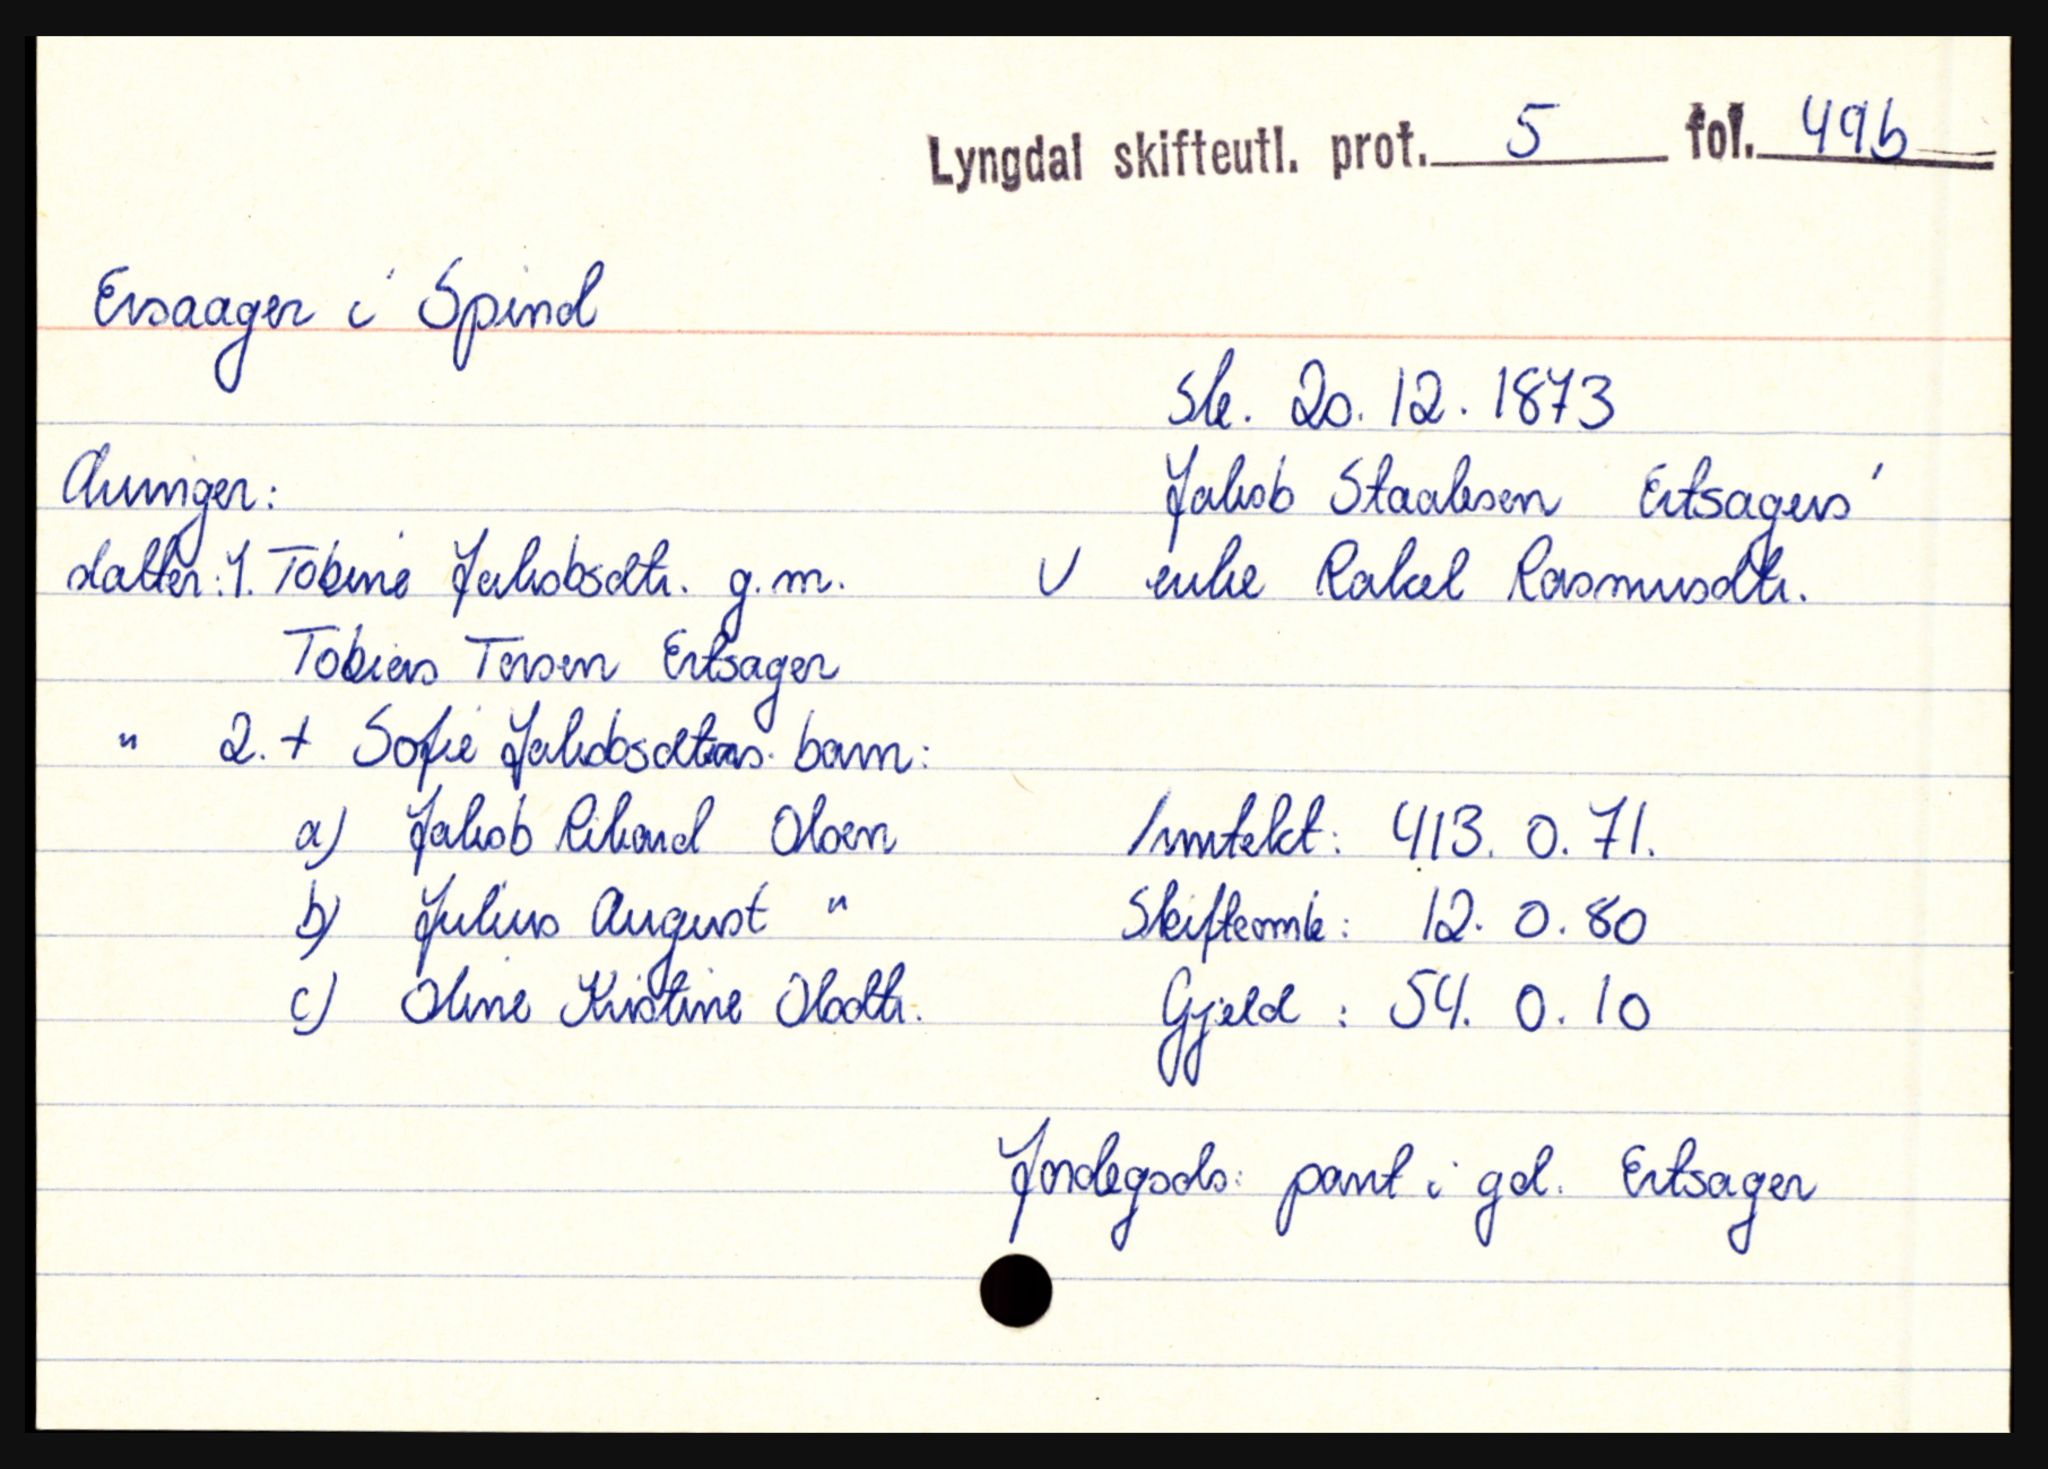 Lyngdal skifteutl. prot. 5 fol. 49b
Ersaager i Spind
Sk. 20.12.1873
Jakob Staalesen Ertsagers'
V enke Rakel Rasmusdtr.
Arvinger:
datter: 1. Tobine Jakobsdtr. g.m.
Tobias Torsen Ertsager
" 2. + Sofie Jakobsdtrs. barn:
a) Jakob Rikard Olsen
b) Julius August "
c) Oline Kristine Olsdtr.
Inntekt: 413. 0. 71.
Skifteomk: 12. 0. 80
Gjeld : 54. 0. 10
Jordegods: pant i gd. Ertsager